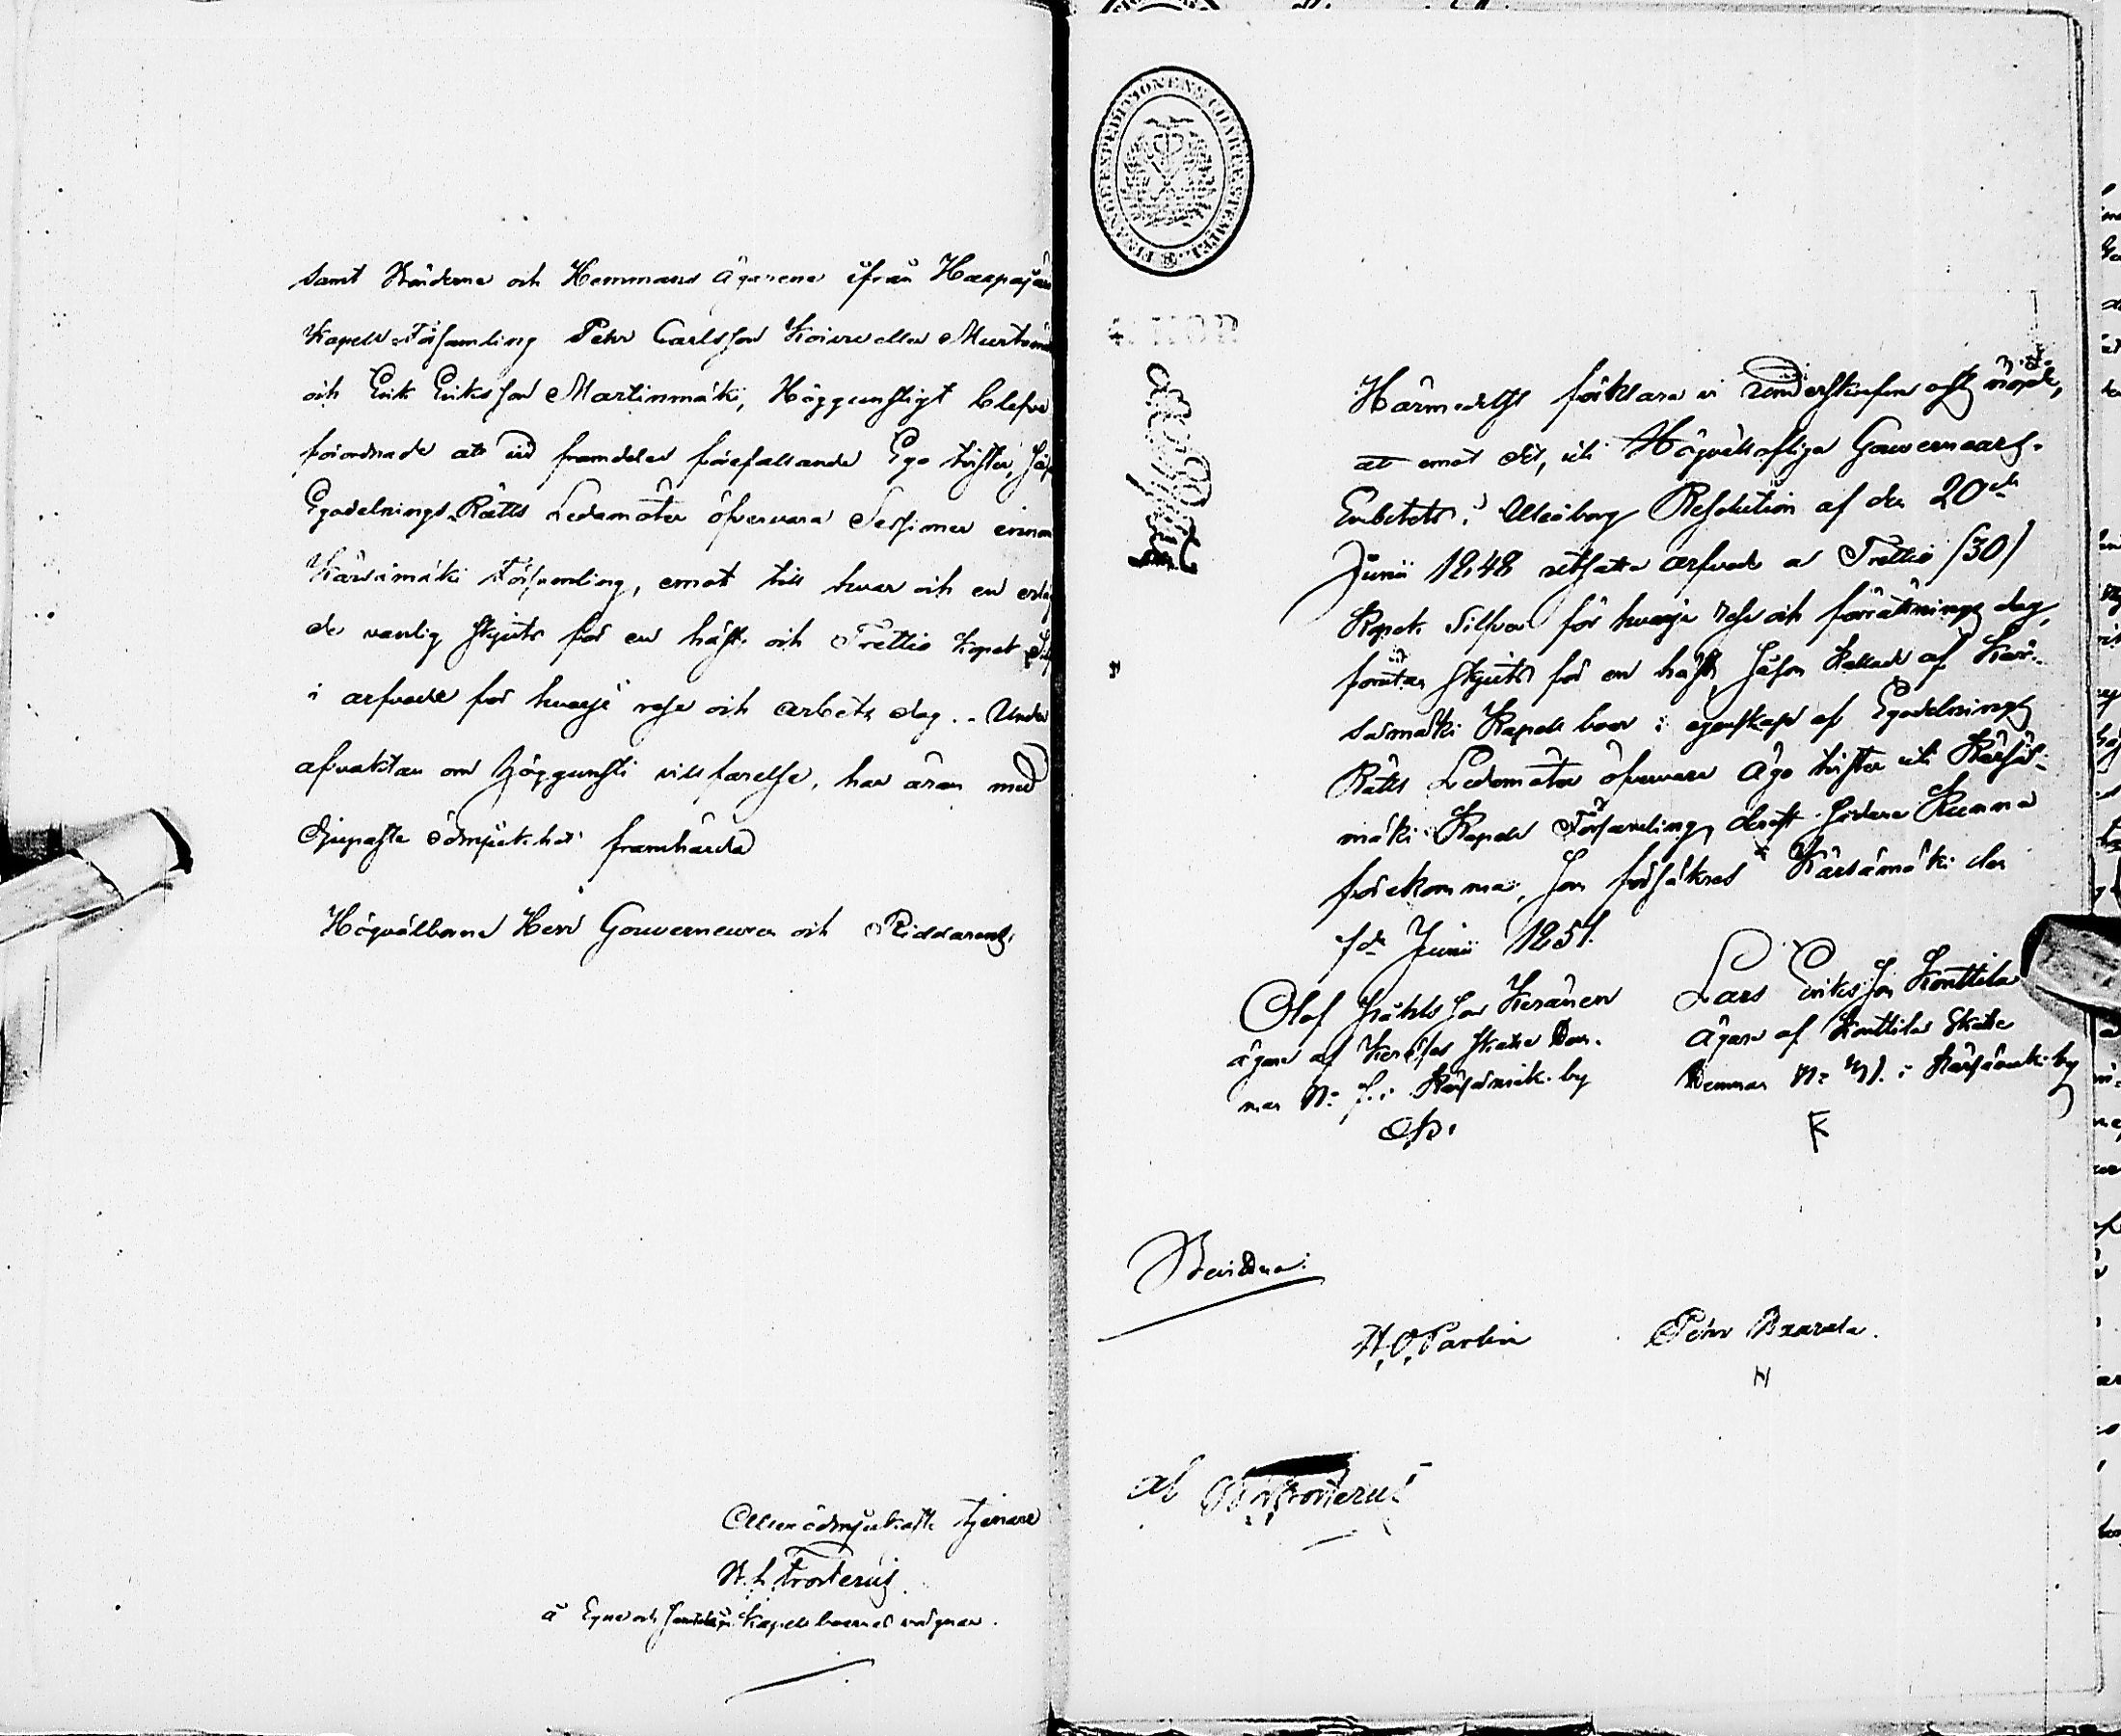 samt Bönderne och Hemmans ägarene ifrån Haapajär
Kapell-Församling Pehr Carlsson Koivu eller Murtomä
och Erik Eriksson Martinmäki, Höggunstigt blefve
förordnade att vid framdeles förefallande Ego tvister, så
Egodelnings-Rätts Ledamöter öfvervara Sessioner innom
Kärsämäki Församling, emot till hvar och en erläg
de vanlig skjuts för en häst och Trettio kopek Silf
i arfvode för hvarje rese och arbets dag. - Under
afvaktan om höggunstig villfarelse, har äran med
djupaste ödmjukhet framhärda
Högvälborne Herr Gouverneuren och Riddarens,
Allerödmjukaste tjenare
Frosterus
å Egne och Kapellboernes vägnar.
FINANCE EXPEDITIONENS CHARTÆ STEMPEL.
KOP
Härmedelst förklara vi underskrefne oss nöjde,
at emot det, uti Högvällofliga Gouverneurs-
Embetets i Uleåborg Resolution af den 20de
Junii 1848 utsatta arfvode a Trettio /30/
Kopek Silfver för hvarje rese och förrättnings dag,
förutan skjuts för en häst, såsom kallade af Kär-
sämäki Kapellboer i egenskap af Egodelnings
Rätts Ledamöter öfvervara Ägo tvister uti Kärsä-
mäki Kapell Församling, derest sådane kunna
förekomma, som försäkras Kärsämäki den
1de Junii 1851.
Olof Keränen
ägare af Skatte Hem-
man N: i Kärsämäki by
Lars Eriksson Konttila
ägare af Konttila Skatte
Hemman N: i Kärsämäki by
K
Bevittna:
Parlin
Pehr
N
Frosterus